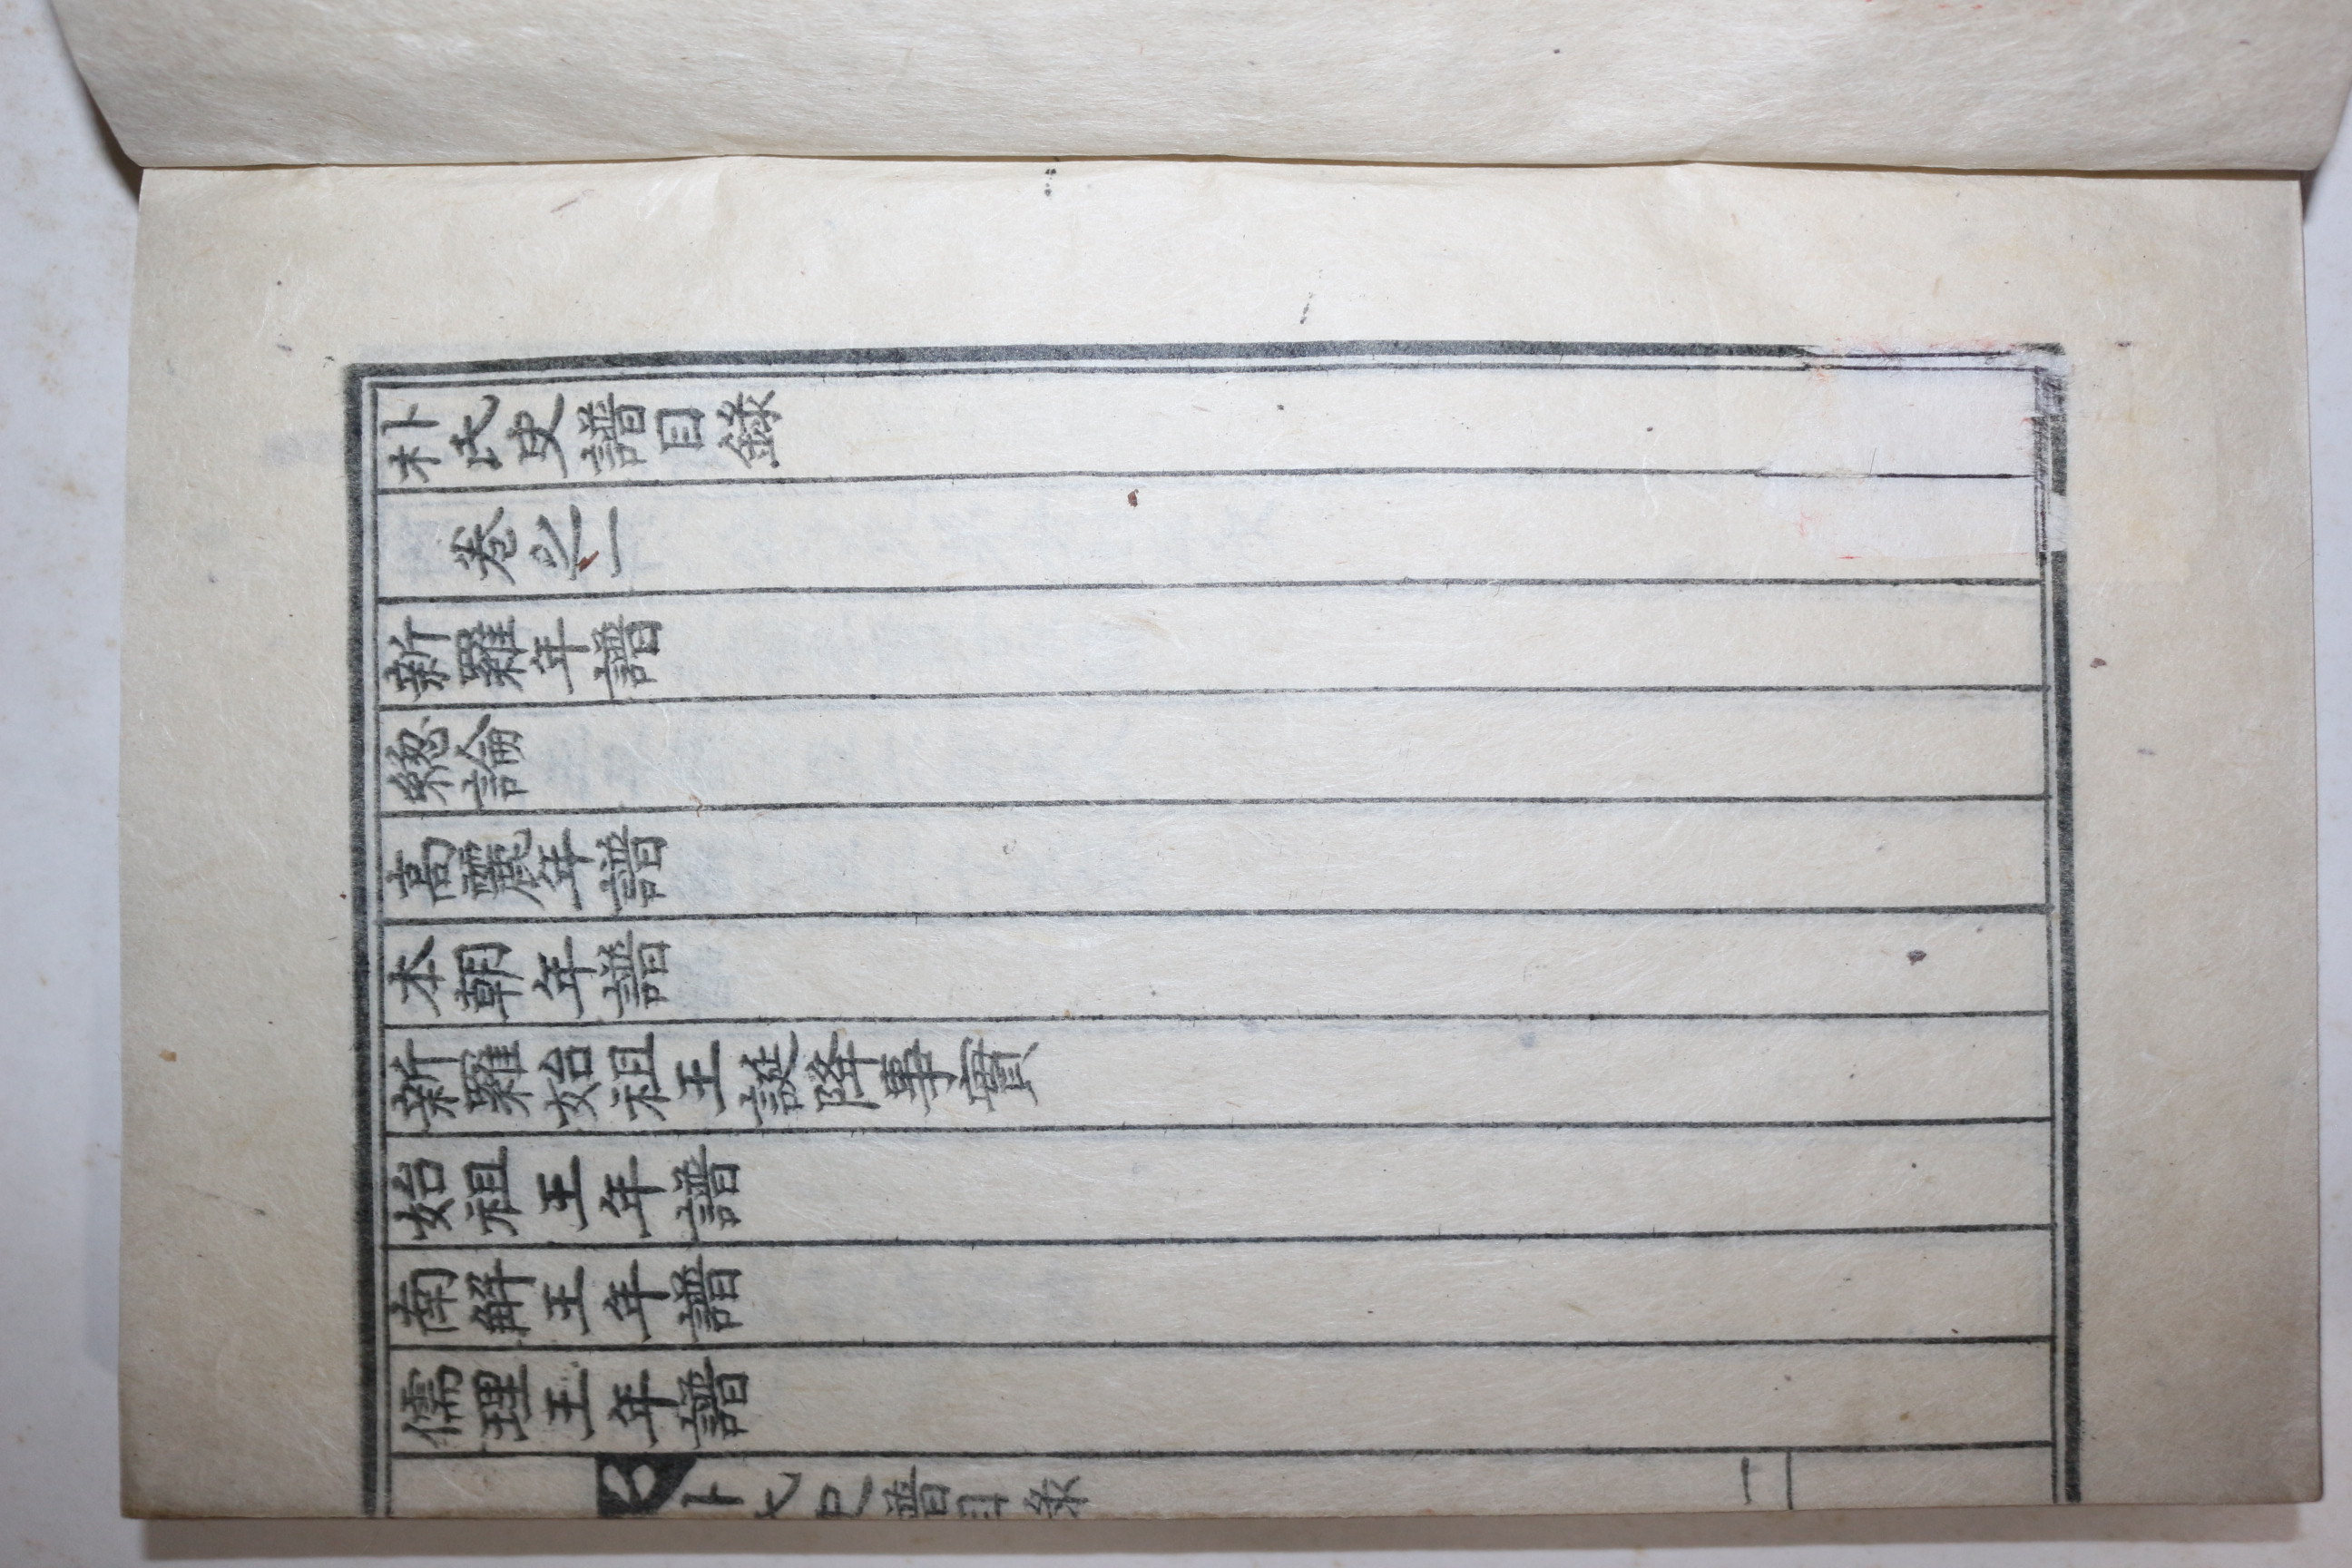 朴氏史譜目錄
卷之一
新羅年譜
總論
高麗年譜
本朝年譜
新羅始祖王誕降事實
始祖王年譜
南解王年譜
儒理王年譜
朴氏史譜目錄
一